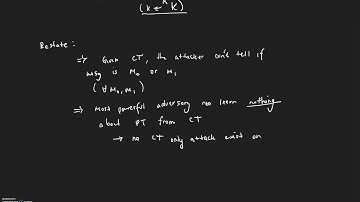 (k ←ᴿ K)
Restate :
⇒ Given CT, the attacker can't tell if
msg is M₀ or M₁
(∀ M₀, M₁)
⇒ most powerful adversary can learn nothing
about PT from CT
→ no CT only attack exist on